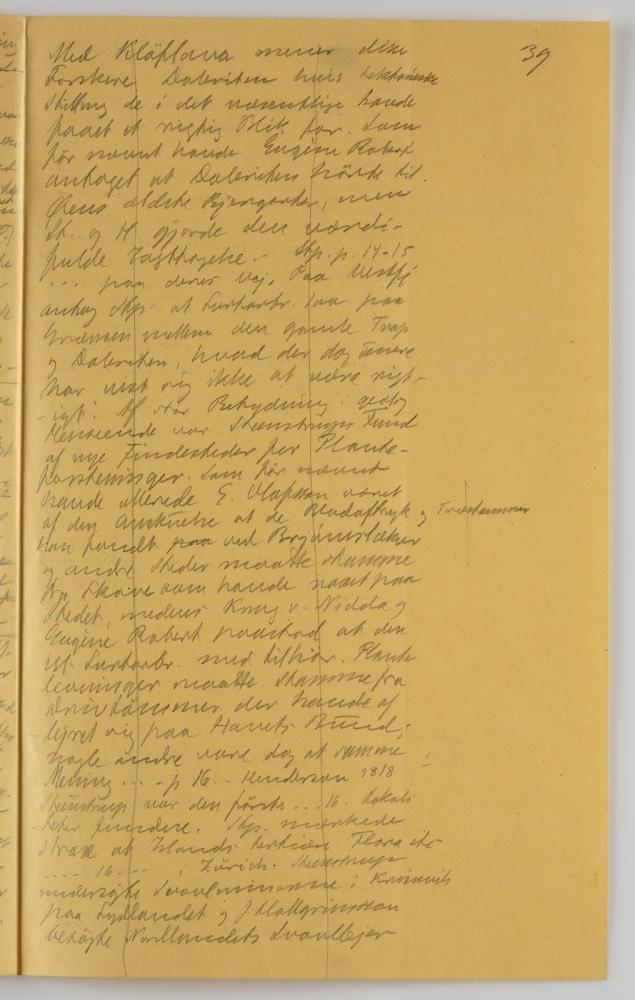 39
Med Blåflava mener disse
Forskere Doleriten hvis tektoniske
Stilling de i det væsentlige havde
faaet et rigtig Blik for. Som
før nævnt havde Eugène Robert
antaget at Doleriten hörte til
Øens ældste Bjergarter, men
St. og H gjorde den værdi-
fulde Iagttagelse - Stp. p. 14-15
.... paa deres vej. Paa Vestfj
antog Stp. at Surtarbr. laa paa
Grænsen mellem den gamle Trap
og Doleriten, hvad der dog senere
har vist sig ikke at være rigt-
-igt. Af stor Betydning i geolog
Henseende var Steenstrups Fund
af nye Findesteder for Plante-
forsteninger. Som før nævnt
havde allerede E. Olafsson været
af den Anskuelse at de Bladaftryk og Træstammer
han fandt paa ved Brjámslækur
og andre Steder maatte stamme
fra Skove som havde voxet paa
Stedet, medens Krug v. Nidda og
Eugène Robert paastod at den
isl. Surtarbr. med tilhør. Plante
levninger maatte stamme fra
Drivtömmer der havde af
lejret sig paa Havets Bund;
nogle andre vare dog af samme
Mening ... - p 16. - Henderson 1818
Steenstrup var den förste ... 16. Lokali
teter fundne. Stp. mærkede
strax at Islands tertiær Flora
.... 16 .... i Zürich. Steenstrup
undersøgte Svovlminerne i Krisuvik
paa Sydlandet og J. Hallgrimsson
besøgte Nordlandets Svovllejer